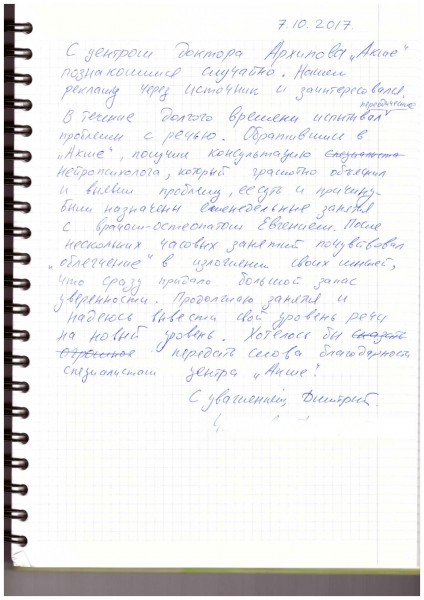 7.10.2017.
С центром доктора Архипова „Акме"
познакомился случайно. Нашел
рекламу через источник и заинтересовался.
В течение долгого времени испытывал
проблемы с речью. Обратившись в
„Акме", получил консультацию специалиста
нейропсихолога, который грамотно объяснил
и выявил проблему, ее суть и причину.
Были назначены еженедельные занятия
с врачом-остеопатом Евгением. После
нескольких часовых занятий почувствовал
„облегчение" в изложении своих мыслей,
что сразу придало большой запас
уверенности. Продолжаю занятия и
надеюсь вывести свой уровень речи
на новый уровень. Хотелось бы сказать
огромное передать слова благодарности
специалистам центра „Акме"!
С уважением, Дмитрий.